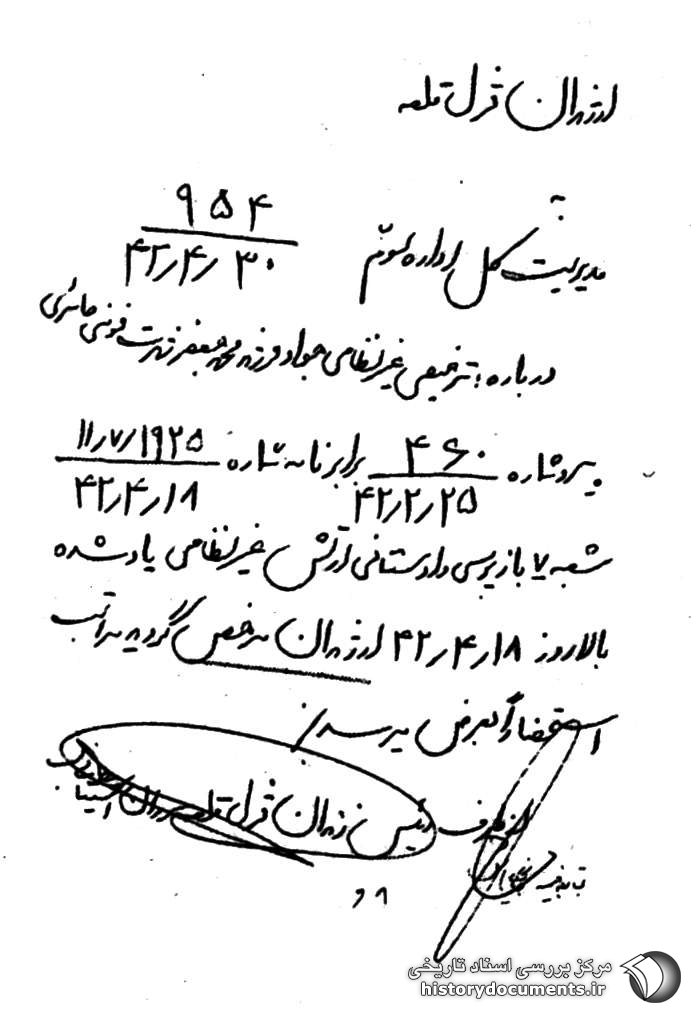 از زندان قزل قلعه
به
مدیریت کل اداره سوم
۹۵۴
۴۲/۴/۳۰
درباره: ترخیص غیرنظامی جواد فرزند محمدجعفر شهرت فومنی حائری
پیرو شماره ۴۶۰ برابر نامه شماره ۱۱/۷/۱۹۲۵
۴۲/۲/۲۵ ۴۲/۴/۱۸
شعبه ۷ بازپرسی دادستانی ارتش غیرنظامی یاد شده
بالا روز ۴۲/۴/۱۸ از زندان مرخص گردید مراتب
استحضاراً بعرض میرسد
از طرف رئیس زندان قزل قلعه
۹ و
مرکز بررسی اسناد تاریخی
historydocuments.ir